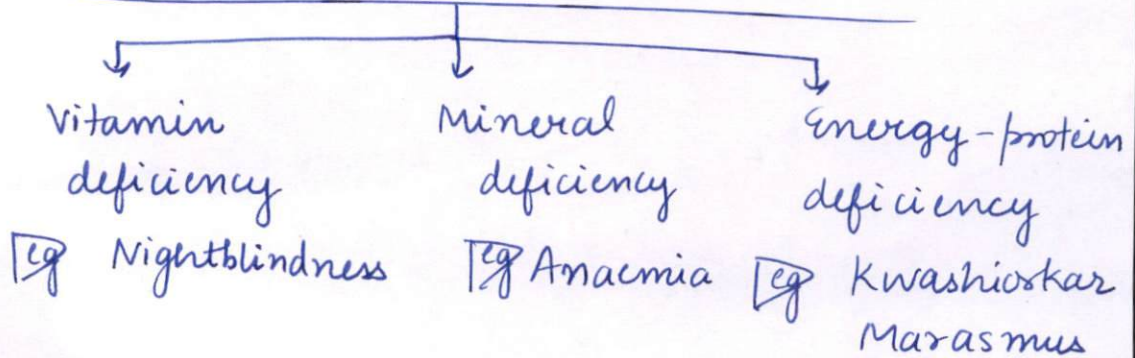 Vitamin
deficiency
eg Nightblindness
Mineral
deficiency
eg Anaemia
Energy-protein
deficiency
eg Kwashiorkar
Marasmus